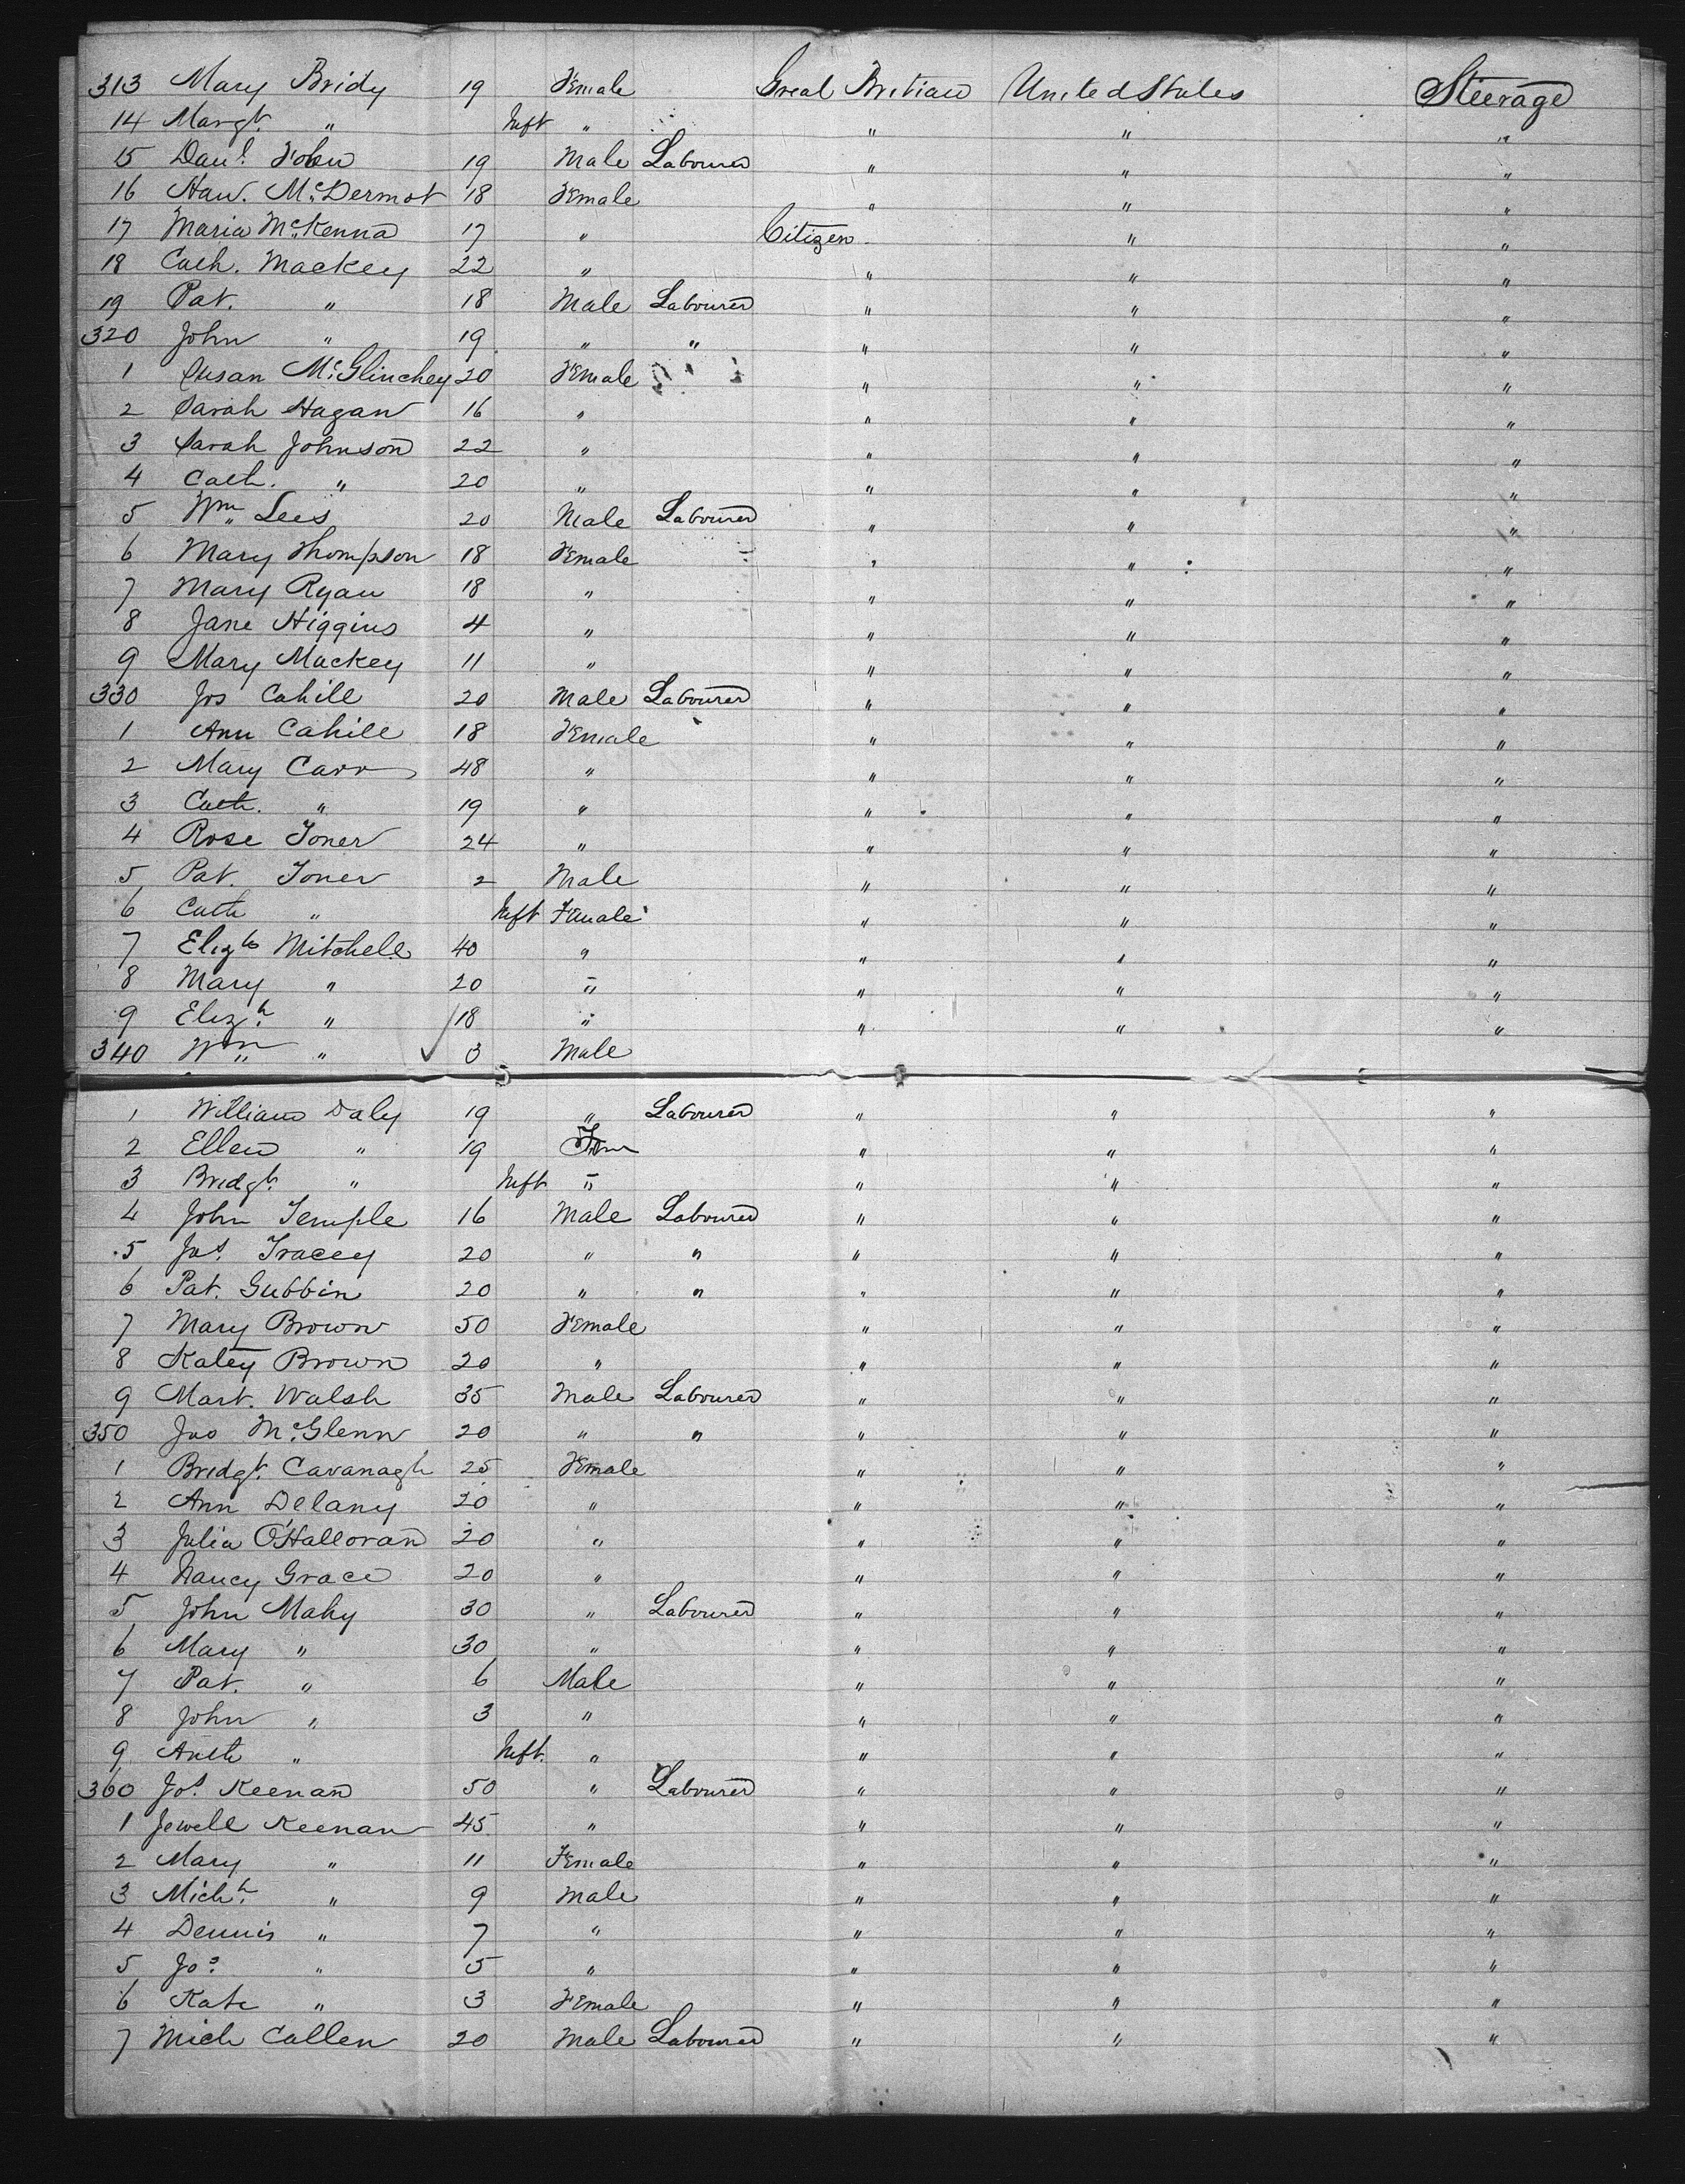 313 Mary Bridy 19 Female Great Britian United States Steerage
14 Margt. " Inft " " " "
15 Danl. 19 Male Labourer " " "
16 Han. McDermot 18 Female " " "
17 Maria McKenna 17 " Citizen " "
18 Cath. Mackey 22 " " " "
19 Pat. " 18 Male Labourer " " "
320 John " 19 " " " " "
1 Susan McGlinchey 20 Female " " "
2 Sarah Hagan 16 " " " "
3 Sarah Johnson 22 " " " "
4 Cath. " 20 " " " "
5 Wm Lees 20 Male Labourer " " "
6 Mary Thompson 18 Female " " "
7 Mary Ryan 18 " " " "
8 Jane Higgins 4 " " " "
9 Mary Mackey 11 " " " "
330 Jos Cahill 20 Male Labourer " " "
1 Ann Cahill 18 Female " " "
2 Mary Carr 48 " " " "
3 Cath. " 19 " " " "
4 Rose Toner 24 " " " "
5 Pat. Toner 2 Male " " "
6 Cath " Inft Female " " "
7 Elizth Mitchell 40 " " " "
8 Mary " 20 " " " "
9 Elizh. " 18 " " " "
340 Wm " 3 Male
1 William Daly 19 " Labourer " " "
2 Ellen " 19 Fem " " "
3 Bridgt. " Inft " " " "
4 John Temple 16 Male Labourer " " "
5 Jas. Tracey 20 " " " " "
6 Pat. Gubbin 20 " " " " "
7 Mary Brown 50 Female " " "
8 Katey Brown 20 " " " "
9 Mart. Walsh 35 Male Labourer " " "
350 Jno McGlenn 20 " " " " "
1 Bridgt. Cavanagh 25 Female " " "
2 Ann Delany 20 " " " "
3 Julia O'Halloran 20 " " " "
4 Nancy Grace 20 " " " "
5 John Mahy 30 " Labourer " " "
6 Mary " 30 " " " "
7 Pat. " 6 Male " " "
8 John " 3 " " " "
9 Anth " Inft. " " " "
360 Jos. Keenan 50 " Labourer " " "
1 Jewell Keenan 45 " " " "
2 Mary " 11 Female " " "
3 Michl. " 9 Male " " "
4 Dennis " 7 " " " "
5 Jos. " 5 " " " "
6 Kate " 3 Female " " "
7 Mich Callen 20 Male Labourer " " "